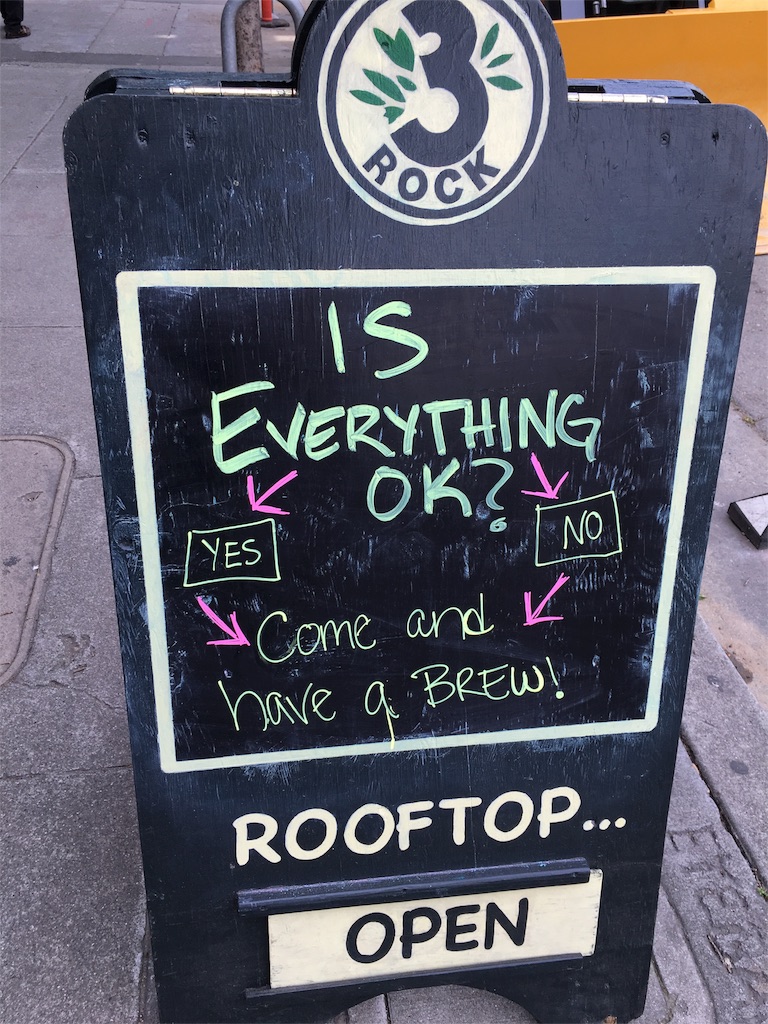 3
ROCK
IS
EVERYTHING
OK?
YES NO
Come and
have a BREW!
ROOFTOP...
OPEN